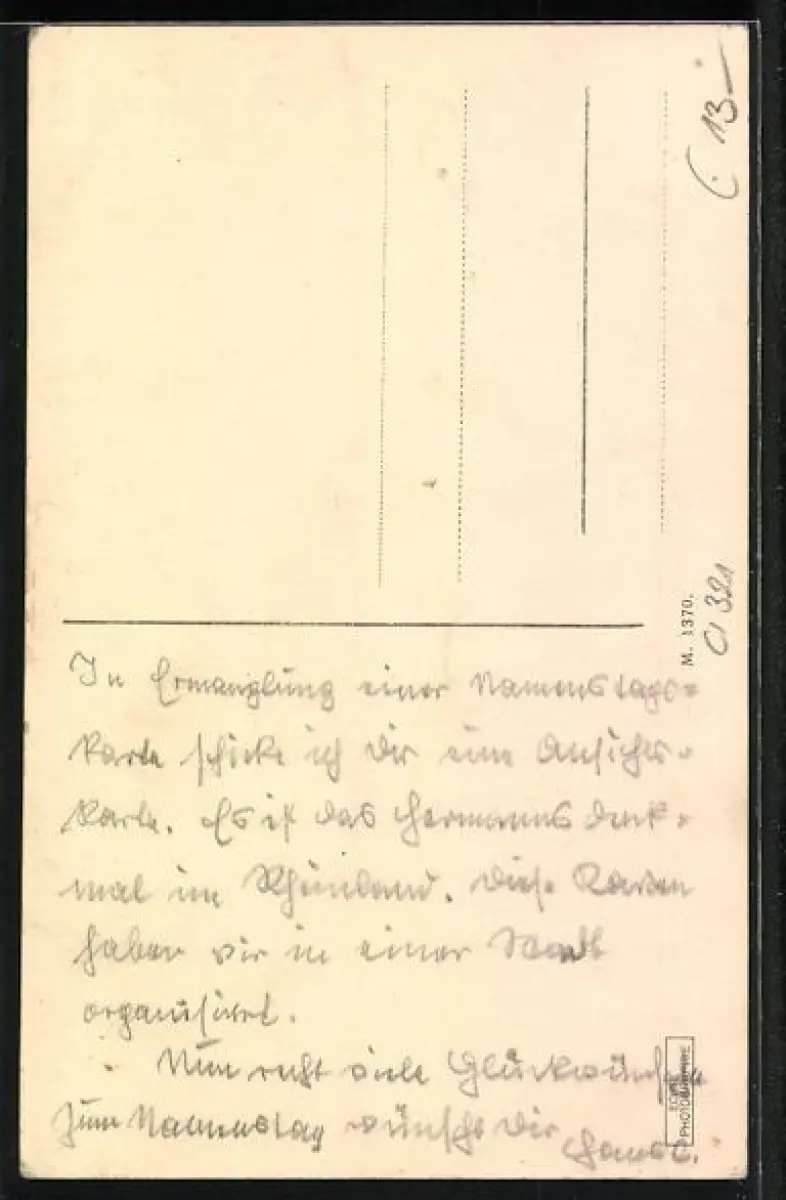 In Ermanglung einer Namenstags=
karte schicke ich Dir eine Ansichts=
karte. Es ist das Hermannsdenk=
mal im Rheinland. Diese Karten
haben wir in einer Stadt
organisiert.
Nun recht viele Glückwünsche
zum Namenstag wünscht Dir
M. 1370.
13—
PHOTOGRAPHIE